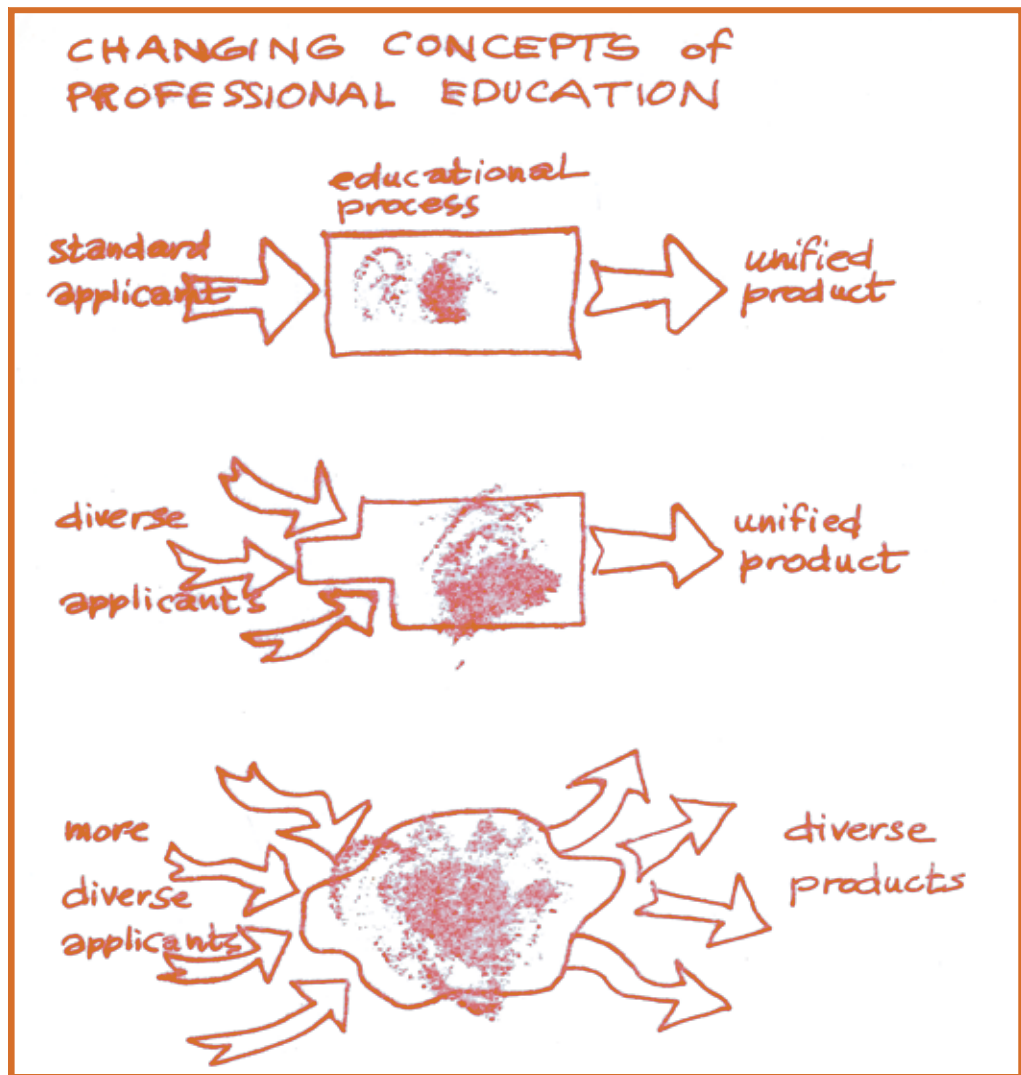 CHANGING CONCEPTS of
PROFESSIONAL EDUCATION
educational
process
standard
applicant
unified
product
diverse
applicants
unified
product
more
diverse
applicants
diverse
products